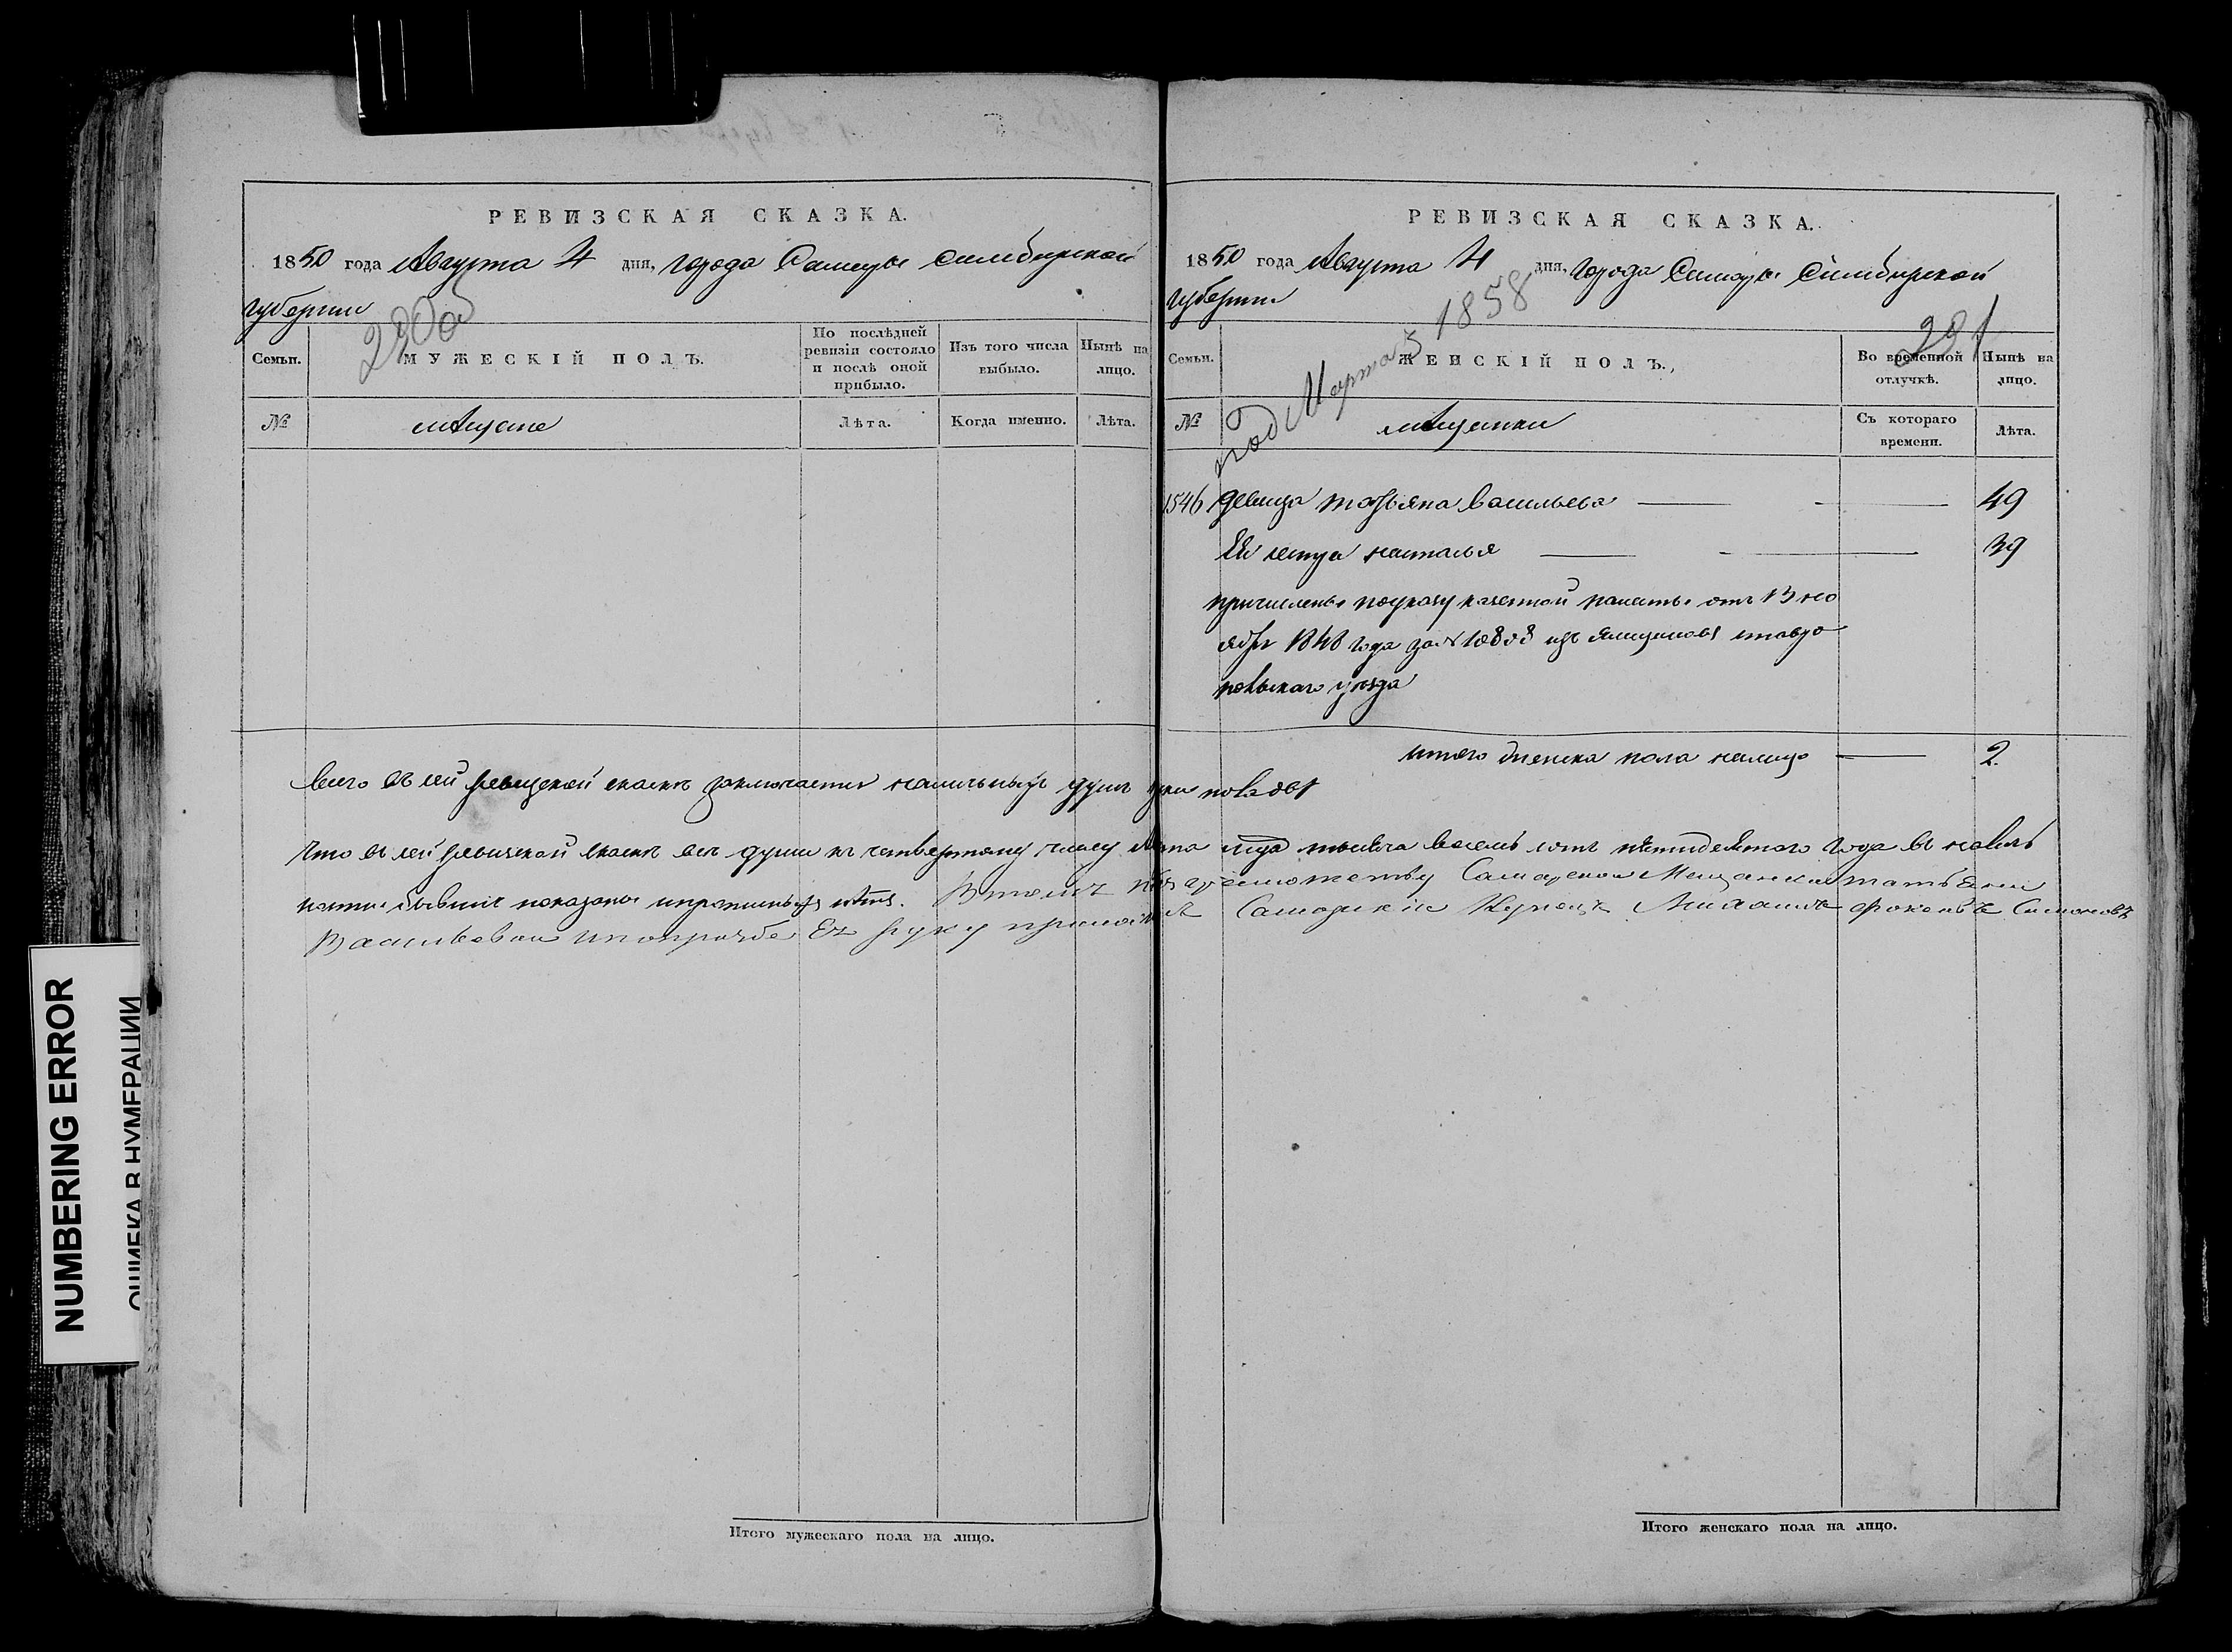 РЕВИЗСКАЯ СКАЗКА.
1850 года Августа 4 дня, города Самары Симбирской
губернии
290 об
Семьи.
МУЖЕСКІЙ ПОЛЪ.
По послѣдней ревизіи состояло и послѣ оной прибыло.
Изъ того числа выбыло.
Нынѣ на лицо.
№
мѣщане
Лѣта.
Когда именно.
Лѣта.
РЕВИЗСКАЯ СКАЗКА.
1850 года Августа 4 дня, города Самары Симбирской
губернии
под Марта 5 1858
291
Семьи.
ЖЕНСКІЙ ПОЛЪ.
Во временной отлучкѣ.
Нынѣ на лицо.
№
мѣщанки
Съ котораго времени.
Лѣта.
1546 девица татьяна Васильева 49
Ея сестра наталья 39
причислены по указу казенной палаты отъ 13 но
ября 1848 года за № изъ ставро
польскаго уезда
итого женска пола налицо 2
Всего въ сей ревизской сказке заключается наличныхъ душъ
что въ сей ревизской сказке все души къ четвертому числу года тысяча восемь сотъ пятидесятого года въ
бывшие показаны лета. Въ томъ Самарской Мещанки татьяны
Васильевой по прозбе Ее руку приложилъ Самарский Купецъ Михаилъ Симоновъ
Итого мужескаго пола на лицо.
Итого женскаго пола на лицо.
NUMBERING ERROR
ОШИБКА В НУМЕРАЦИИ